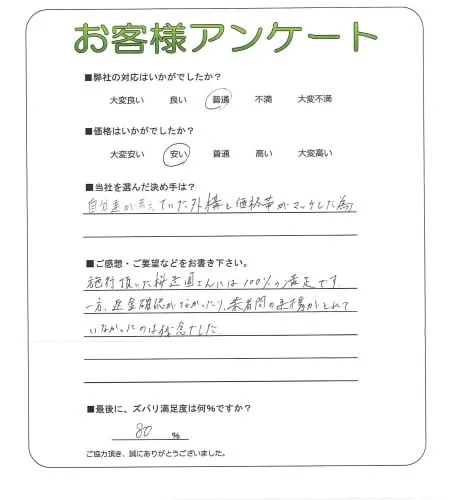 お客様アンケート
■弊社の対応はいかがでしたか？
大変良い 良い 普通 不満 大変不満
■価格はいかがでしたか？
大変安い 安い 普通 高い 大変高い
■当社を選んだ決め手は？
自分達が考えていた外構と価格帯がマッチした為
■ご感想・ご要望などをお書き下さい。
施行頂いた 造園さんには100%の満足です。
一方、返金確認がなかったり、業者間の連携がとれて
いなかったのは残念でした。
■最後に、ズバリ満足度は何％ですか？
80 ％
ご協力頂き、誠にありがとうございました。